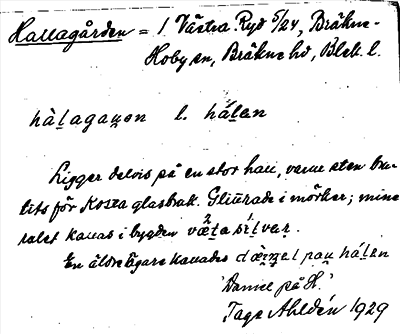 Hallagården = 1 Västra Ryd 5/24, Bräkne-
Hoby sn, Bräkne hd, Blek. l.
hàḷagaṇen l. háḷen
Ligger delvis på en stor hall, varur sten bru-
tits för Kosta glasbruk. Glimrade i mörker; mine-
ralet kallas i bygden
En äldre ägare kallades
'Daniel på H.'
Tage Ahldén 1929